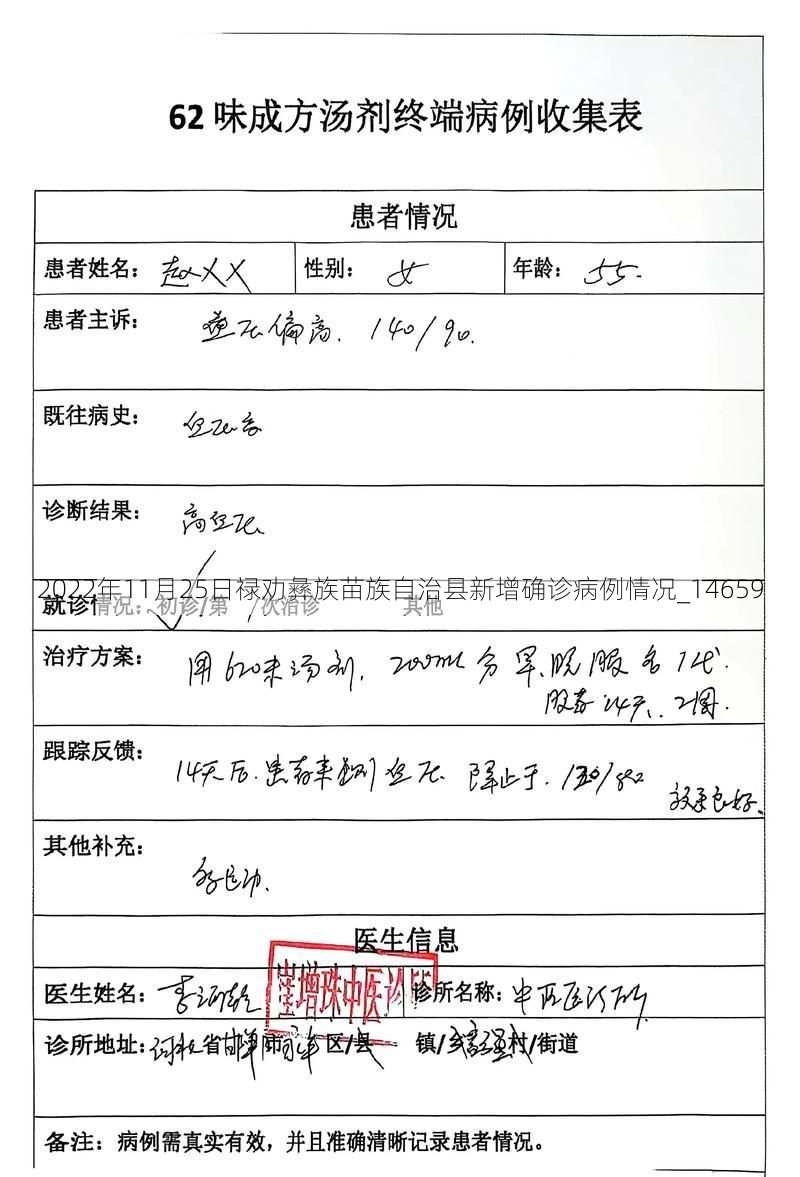 62味成方汤剂终端病例收集表
患者情况
患者姓名：赵XX 性别：女 年龄：55.
患者主诉：血压偏高. 140/90.
既往病史：血压高
诊断结果：高血压
2022年11月25日禄劝彝族苗族自治县新增确诊病例情况_14659
就诊情况：初诊/第 / 次治诊 其他
治疗方案：用62味汤剂, 200ml 分早、晚服各1代.
服药14天、2周.
跟踪反馈：14天后. 患者来 血压
效果良好.
其他补充：
医生信息
医生姓名：李 诊所名称：中医诊所
崔增珠中医诊所
诊所地址：河北省邯郸市 区/县 镇/乡 村/街道
备注：病例需真实有效，并且准确清晰记录患者情况。